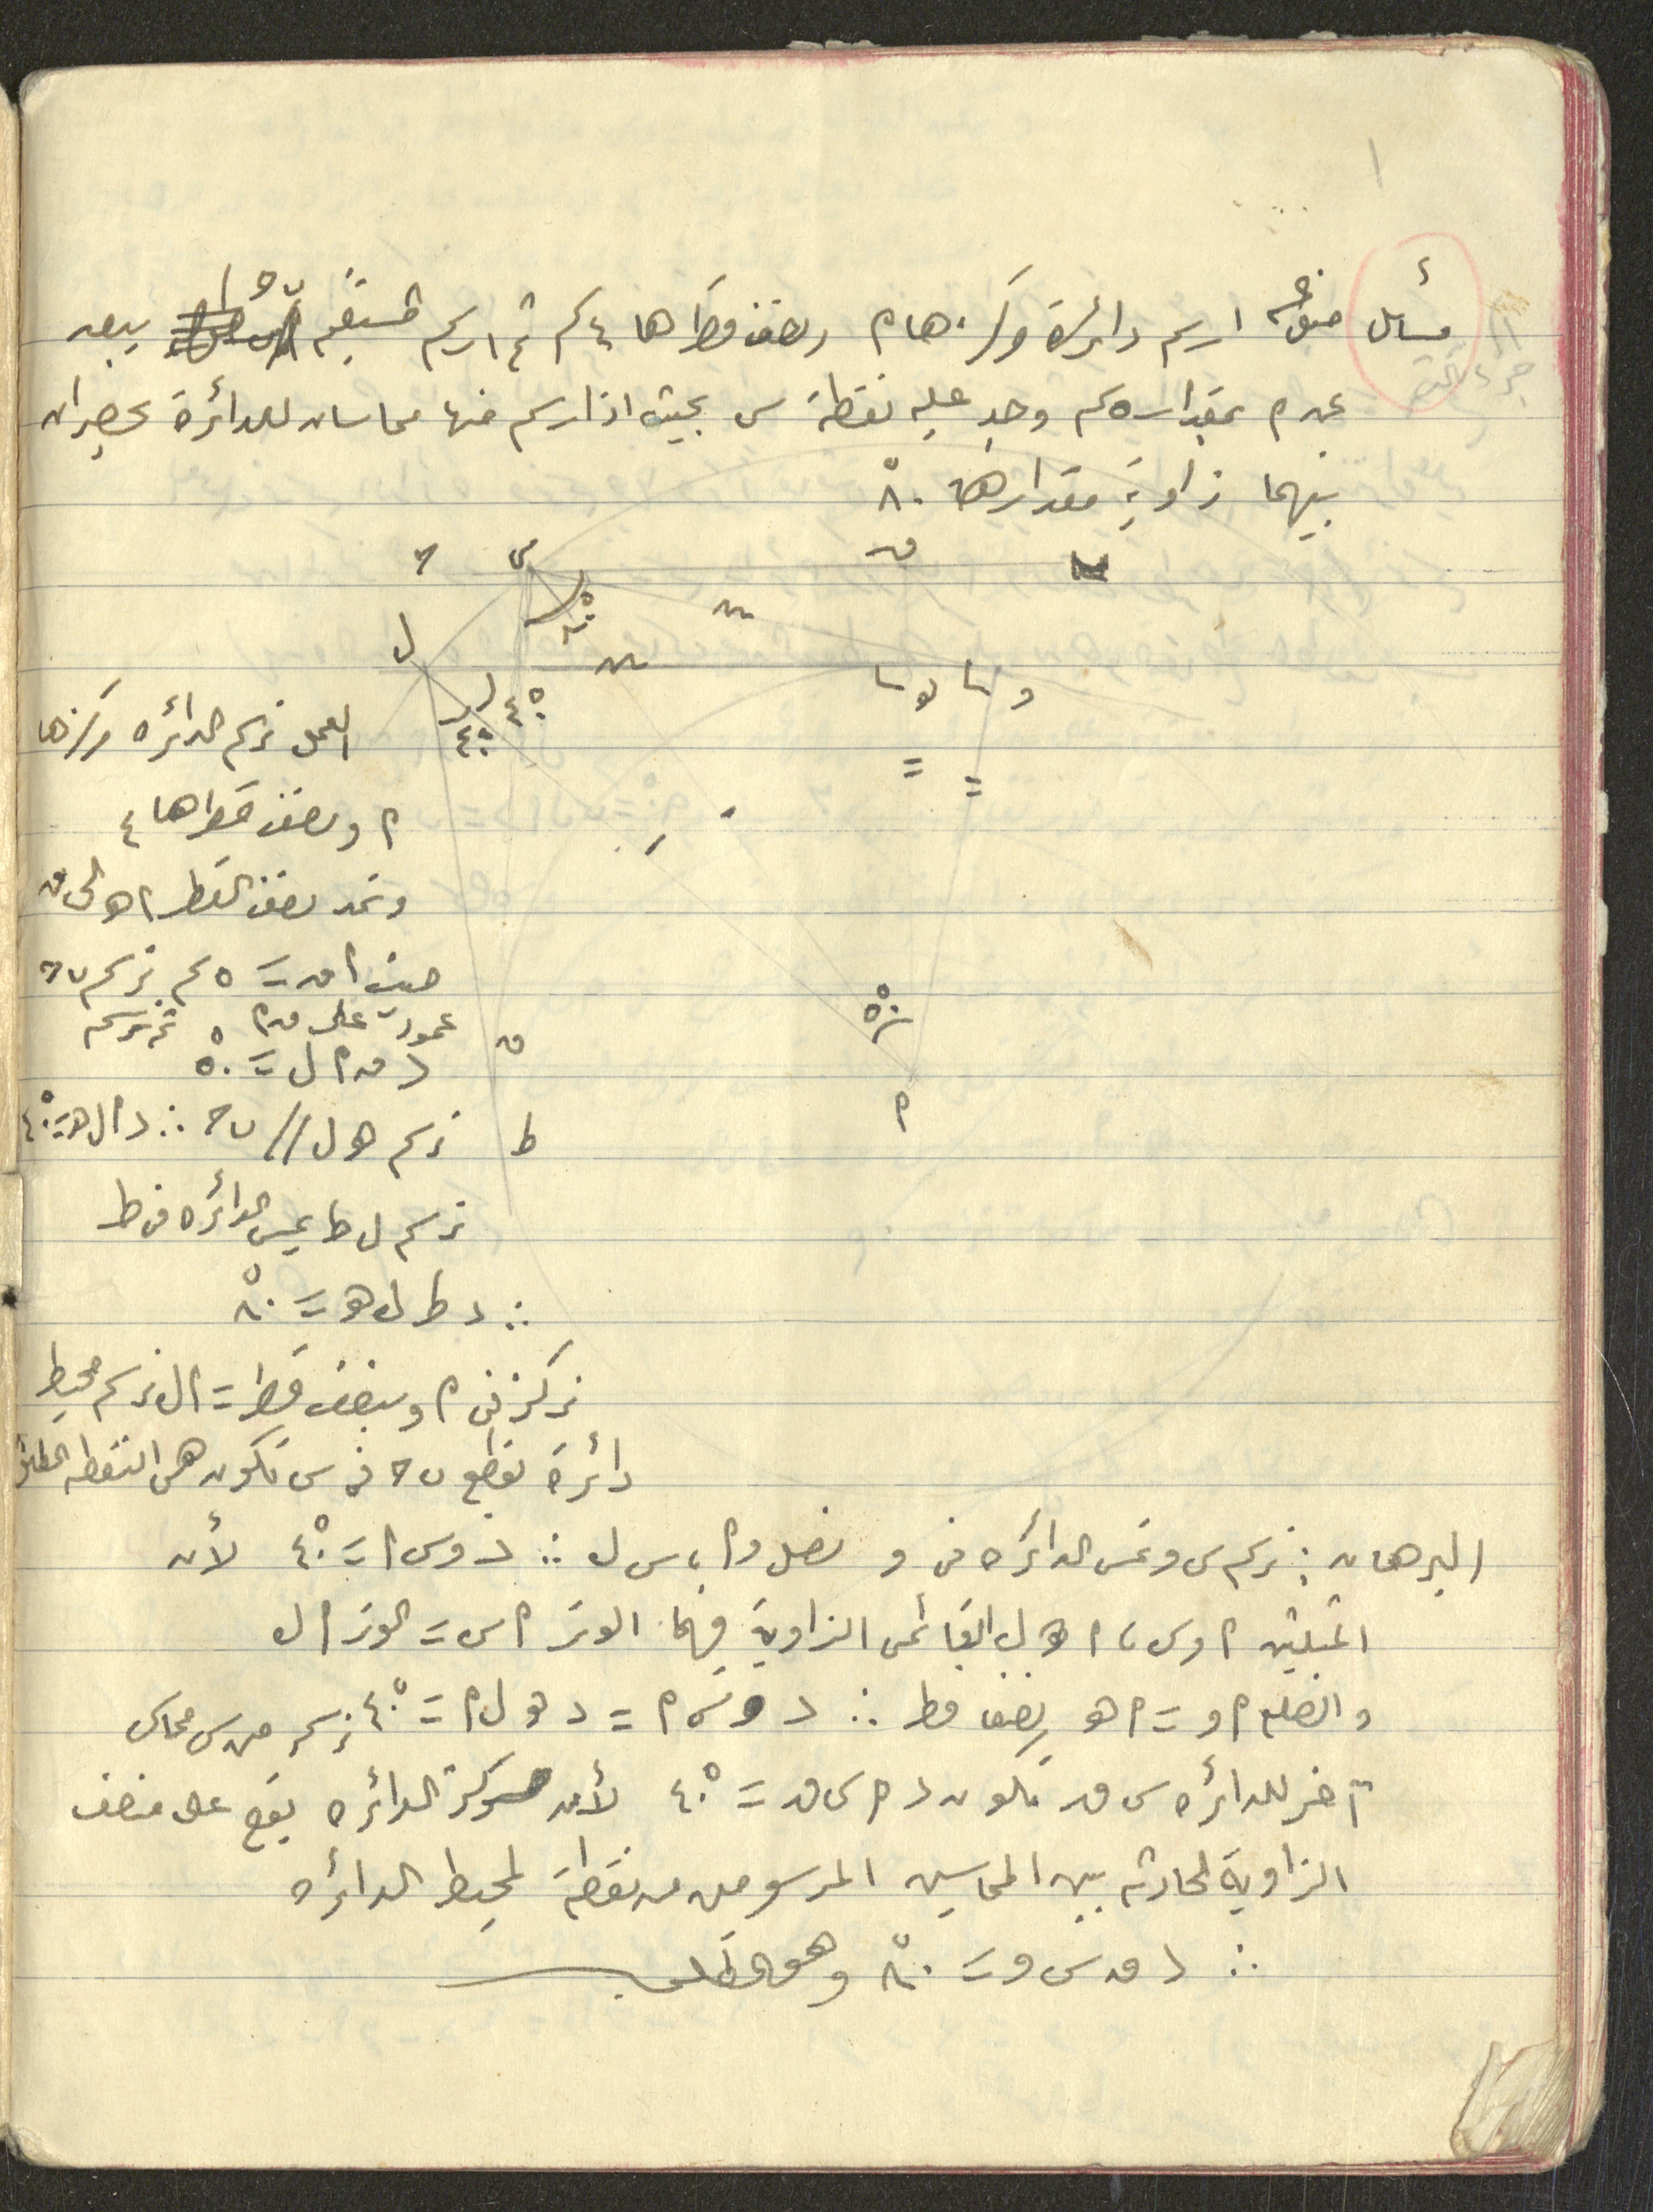 ١
مسائل متنوعة ارسم دائرة مركزها م ونصف قطرها ٤ سم ثم ارسم مستقيم ب ح يبعد
عن م بمقدار ٥ سم وجد عليه نقطة س بحيث اذا رسم منها مماسان للدائرة يحصران
بينهما زاوية مقدارها ٨٠°
ح س ن
ل
٨٠°
٤٠°
٤٠°
العمل نرسم الدائره مركزها
م ونصف قطرها ٤
ونمد نصف القطر م هـ الى ن
حيث م ن = ٥ سم نرسم ب ح
عمود على ن م ثم نرسم
> ن م ل = ٥٠°
ن
٥٠°
م
ط
نرسم هـ ل // ب ح ∴ > م ل هـ = ٤٠°
نرسم ل ط يمس الدائره في ط
∴ > ط ل هـ = ٨٠°
نركز في م وبنصف قطر = م ل نرسم محيط
دائرة تقطع ب ح في س تكون هي النقطه
البرهان : نرسم س و تمس الدائره في و نصل و م ، س ل ∴ > و س م = ٤٠° لأن
المثلثين م و س ، م هـ ل القائمى الزاوية فيهما الوتر م س = الوتر م ل
والضلع م و = م هـ نصفا قطر ∴ > و س م = > هـ ل م = ٤٠° نرسم من س مماس
آخر للدائره س ن تكون > م س ن = ٤٠° لأن مركز الدائره يقع على منصف
الزاوية الحادثه بين المماسين المرسومين من نقطة لمحيط الدائره
∴ > ن س و = ٨٠° وهو المطلوب